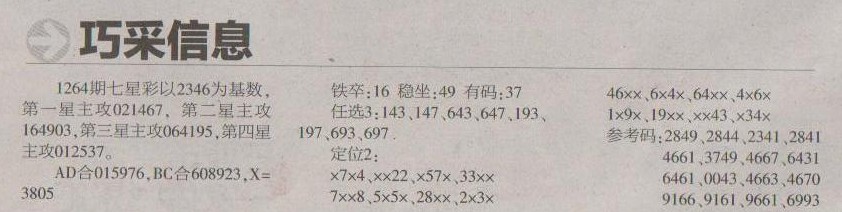 巧采信息
1264期七星彩以2346为基数,
第一星主攻021467, 第二星主攻
164903,第三星主攻064195,第四星
主攻012537。
AD合015976,BC合608923,X=
3805
铁卒:16 稳坐:49 有码:37
任选3:143、147、643、647、193、
197、693、697.
定位2:
×7×4、××22、×57×、33××
7××8、5×5×、28××、2×3×
46××、6×4×、64××、4×6×
1×9×、19××、××43、×34×
参考码:2849、2844、2341、2841
4661、3749、4667、6431
6461、0043、4663、4670
9166、9161、9661、6993